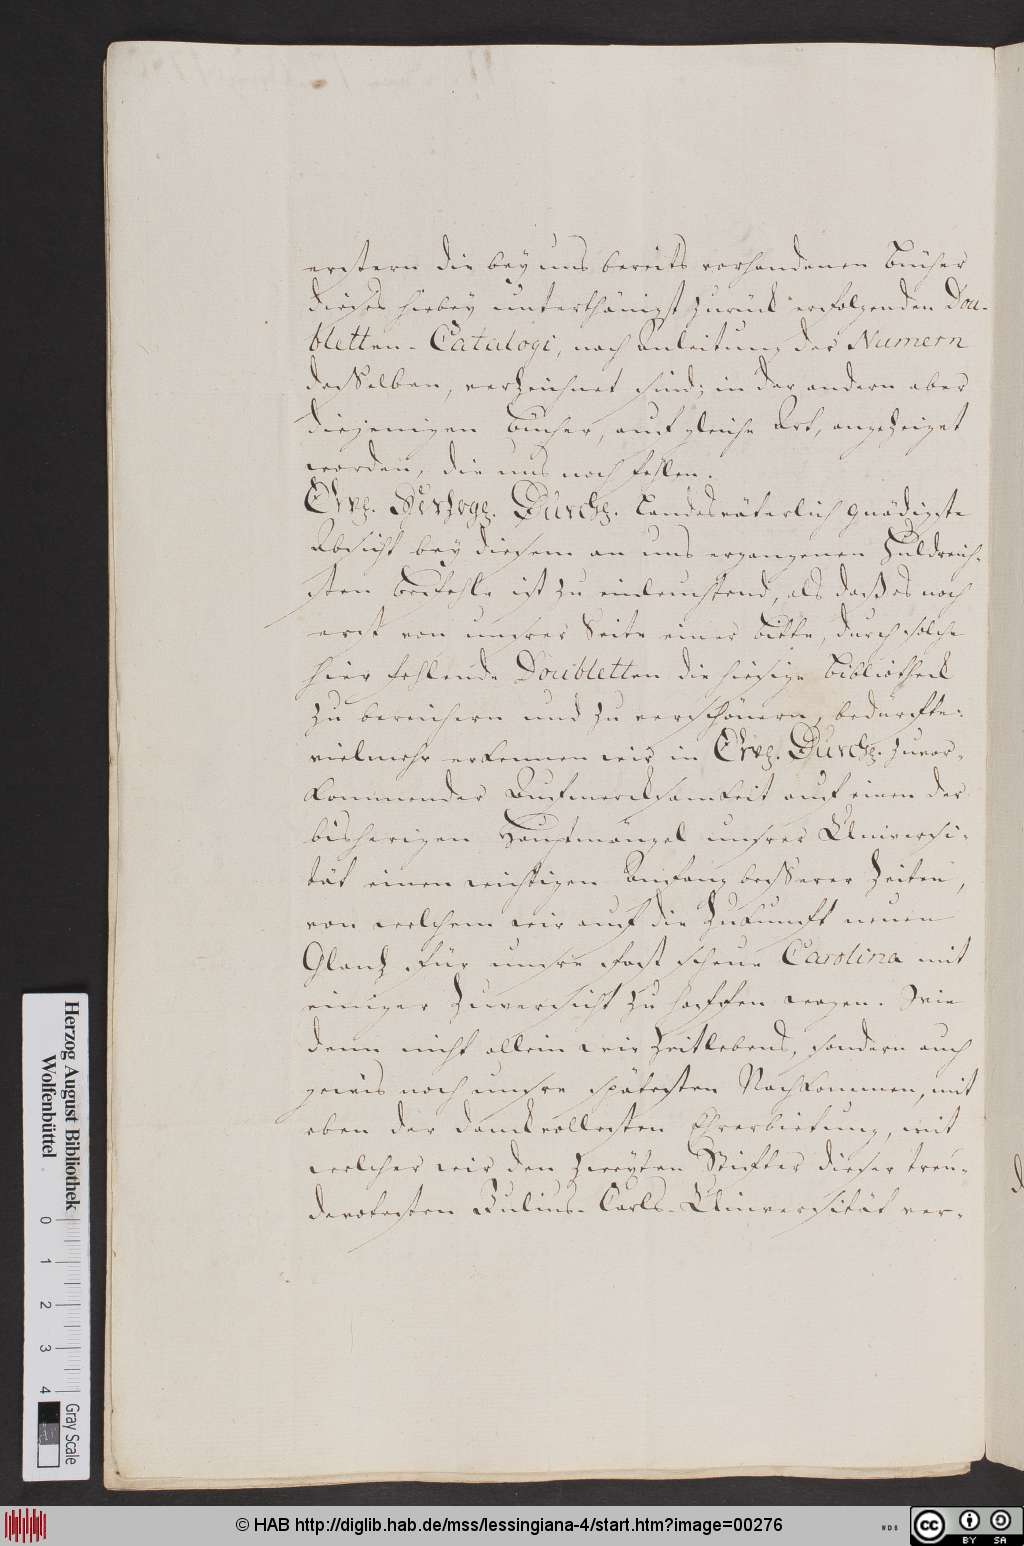 erstern die bey uns bereits vorhandenen Bücher
dieses hiebey unterthänigst zurück erfolgenden Dou-
bletten-Catalogi, nach Anleitung der Numern
desselben, verzeichnet sind; in der andern aber
diejenigen Bücher, auf gleiche Art, angezeiget
worden, die uns noch fehlen.
Erw. Herzogl. Durchl. Landesväterlich gnädigste
Absicht bey diesem an uns ergangenen Huldreich-
sten Befehle ist zu einleuchtend, als daß es noch
erst von unsrer Seite einer Bitte, durch solche
hier fehlende Doubletten die hiesige Bibliotheck
zu bereichern und zu verschönern, bedürfte:
vielmehr erkennen wir in Erw. Durchl. zuvor-
kommender Aufmercksamkeit auf einen der
bisherigen Hauptmängel unsrer Universi-
tät einen wichtigen Anfang besserer Zeiten,
von welchem wir auf die Zukunft neuen
Glanz für unsre fast scheue Carolina mit
einiger Zuversicht zu hoffen wagen. Wie
denn nicht allein wir Zeitlebens, sondern auch
gewis noch unsre spätesten Nachkommen, mit
eben der danckvollesten Ehrerbietung, mit
welcher wir den zweyten Stifter dieser treu-
devotesten Julius-Carls-Universität ver-
Herzog August Bibliothek
Wolfenbüttel
0 1 2 3 4
Gray Scale
© HAB http://diglib.hab.de/mss/lessingiana-4/start.htm?image=00276
cc BY SA